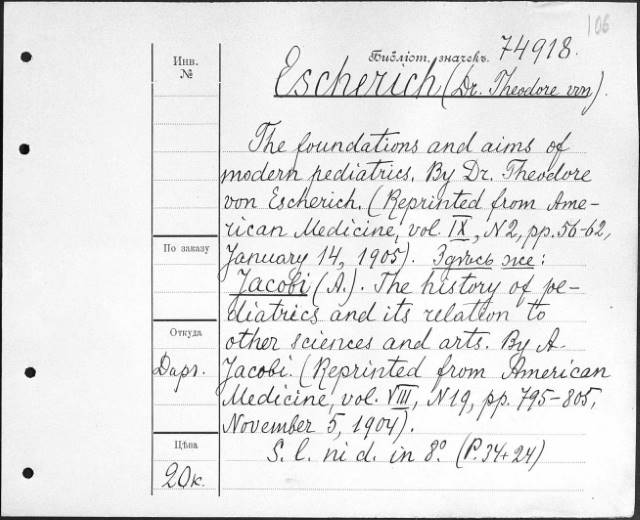 106
Библіот. значекъ. 74918.
Инв.
№
Escherich, (Dr. Theodore von).
The foundations and aims of
modern pediatrics. By Dr. Theodore
von Escherich. (Reprinted from Ame-
rican Medicine, vol. IX, N2, pp. 56-62,
January 14, 1905). Здѣсь же:
По заказу
Jacobi (A.). The history of pe-
diatrics and its relation to
Откуда
other sciences and arts. By A.
Даръ.
Jacobi. (Reprinted from American
Medicine, vol. VIII, N19, pp. 795-805,
November 5, 1904).
Цѣна
S. l. ni d. in 8º. (P. 34+24)
20к.